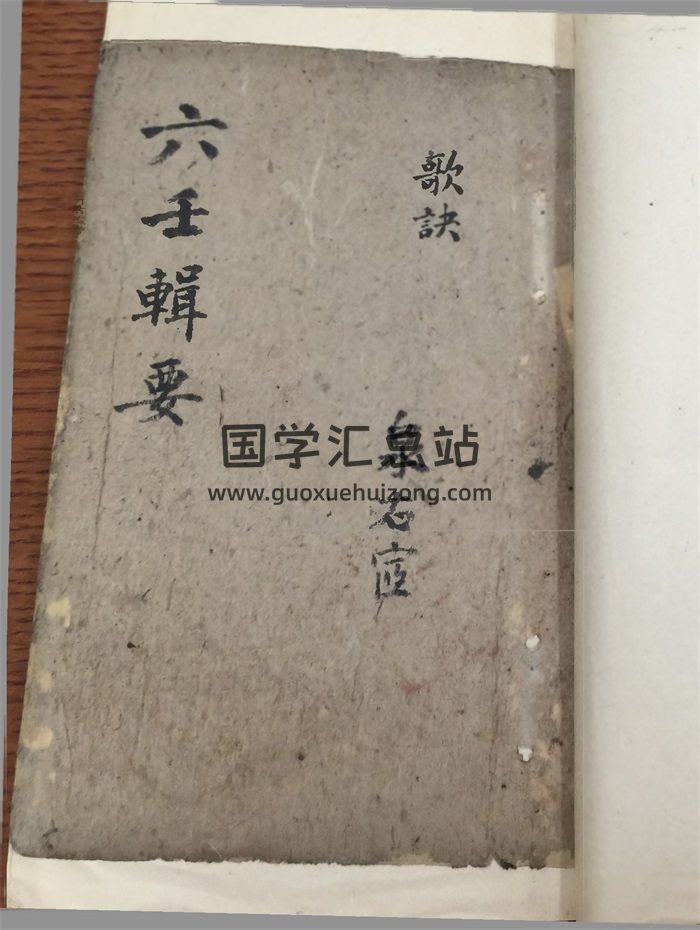 歌訣
泉石
六壬輯要
国学汇总站
www.guoxuehuizong.com